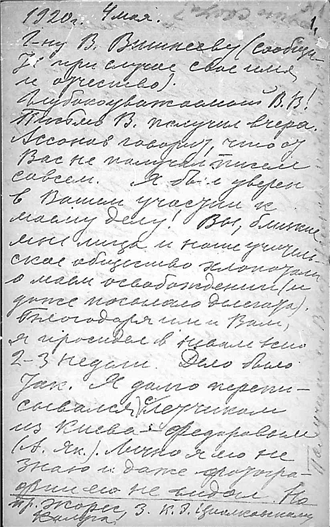 1920 г. 4 мая.
Г-ну В. Вишнееву (сообщи-
те при случае свое имя
и отчество).
Глубокоуважаемый В. В!
Письмо В. получил вчера.
Ассонов говорит, что от
Вас не получал писем
совсем. Я был уверен
в Вашем участии к
моему делу! Вы, близкие
мне лица и наше учитель-
ское общество хлопотали
о моем освобождении (и
даже посылало делегата).
Благодаря им и Вам,
я просидел в
2-3 недели. Дело было
так. Я долго перепи-
сывался с летчиком
из Киева Федоровым
(А. Як.). Лично я его не
знаю и даже фотогра-
фии его не видал. На
пр. Жорес, 3. К. Э. Циолковскому
Калуга,